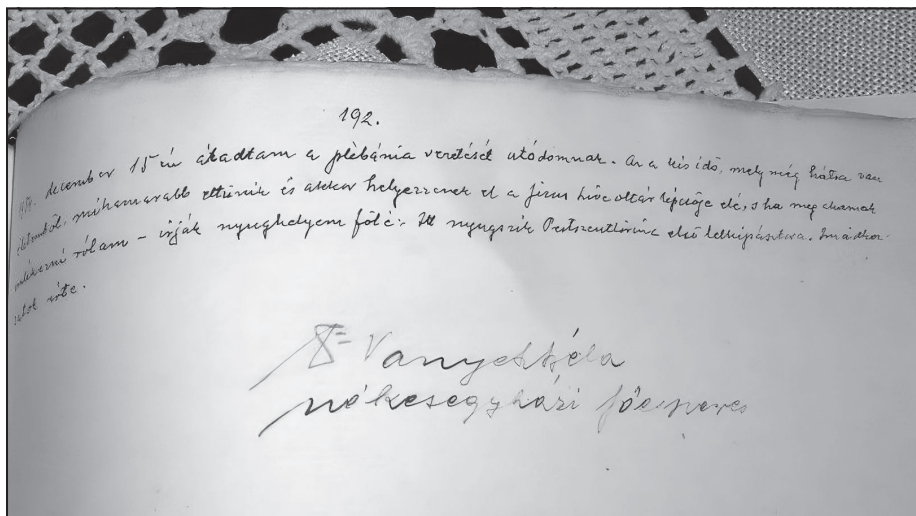 192.
december 15 én átadtam a plébánia vezetését utódomnak. Az a kis idő, mely még hátra van
életemből, mihamarabb eltűnik és akkor helyezzenek el a Jézus Szíve oltár lépcsője elé, s ha meg akarnak
emlékezni rólam – írják nyughelyem fölé: Itt nyugszik Pestszentlőrinc első lelkipásztora. Imádkoz-
zatok érte.
Dr Vanyek Béla
székesegyházi főesperes